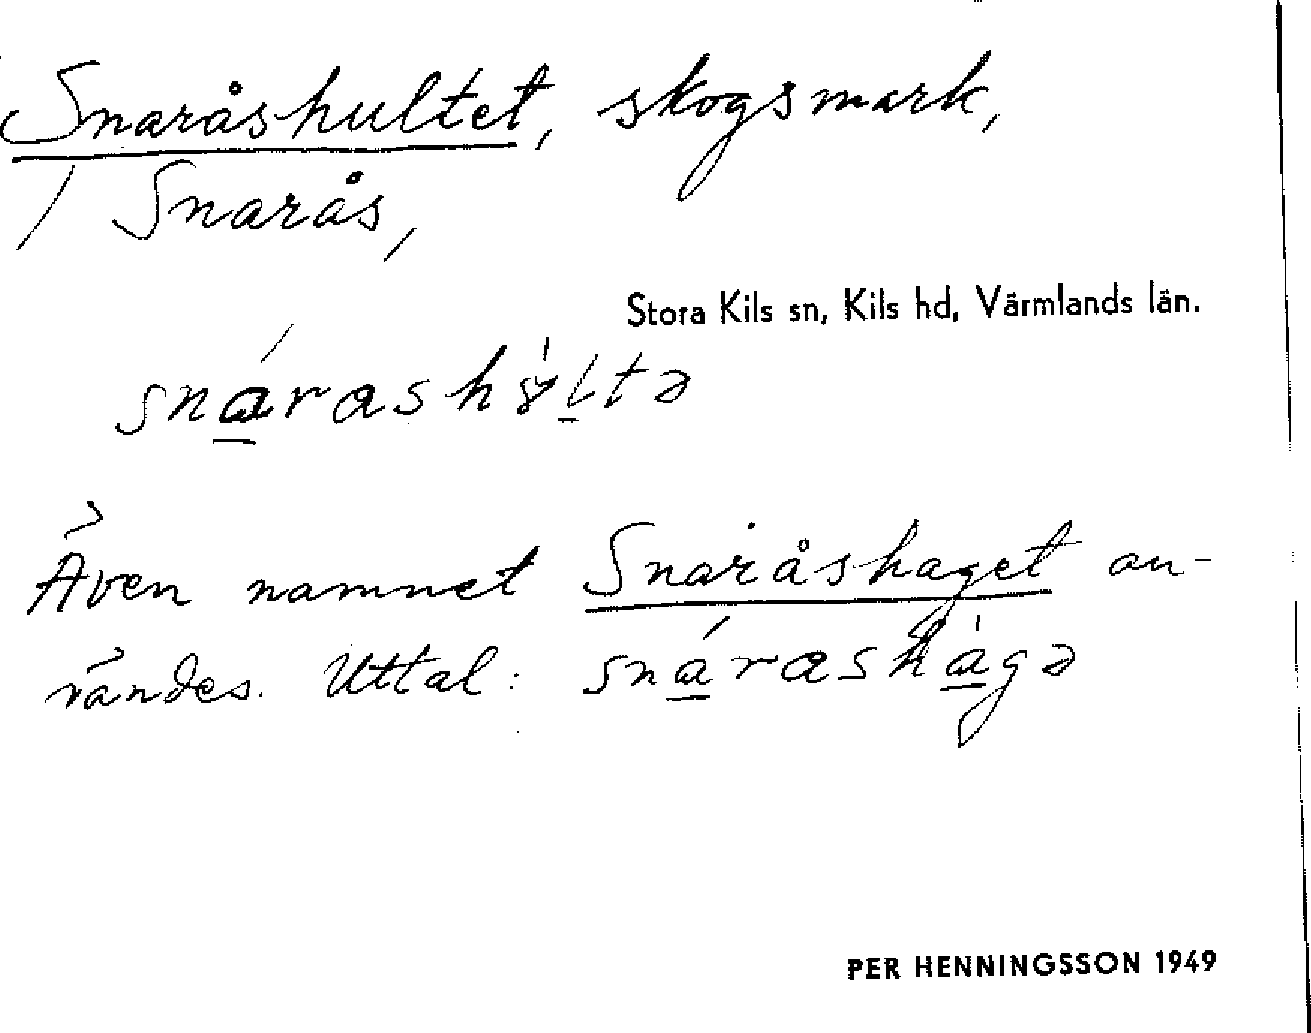 Snaråshultet, skogsmark,
/ Snarås,
Stora Kils sn, Kils hd, Värmlands län.
Även namnet Snaråshaget an-
vändes. Uttal: snárashàgə
PER HENNINGSSON 1949